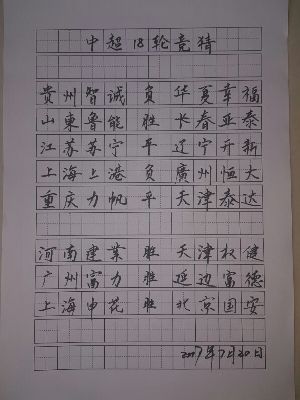 中超18轮竞猜
贵州智诚负华夏幸福
山東鲁能胜长春亚泰
江苏苏宁平辽宁开新
上海上港负廣州恒大
重庆力帆平天津泰达
河南建業胜天津权健
广州富力胜延边富德
上海申花胜北京国安
2017年7月20日